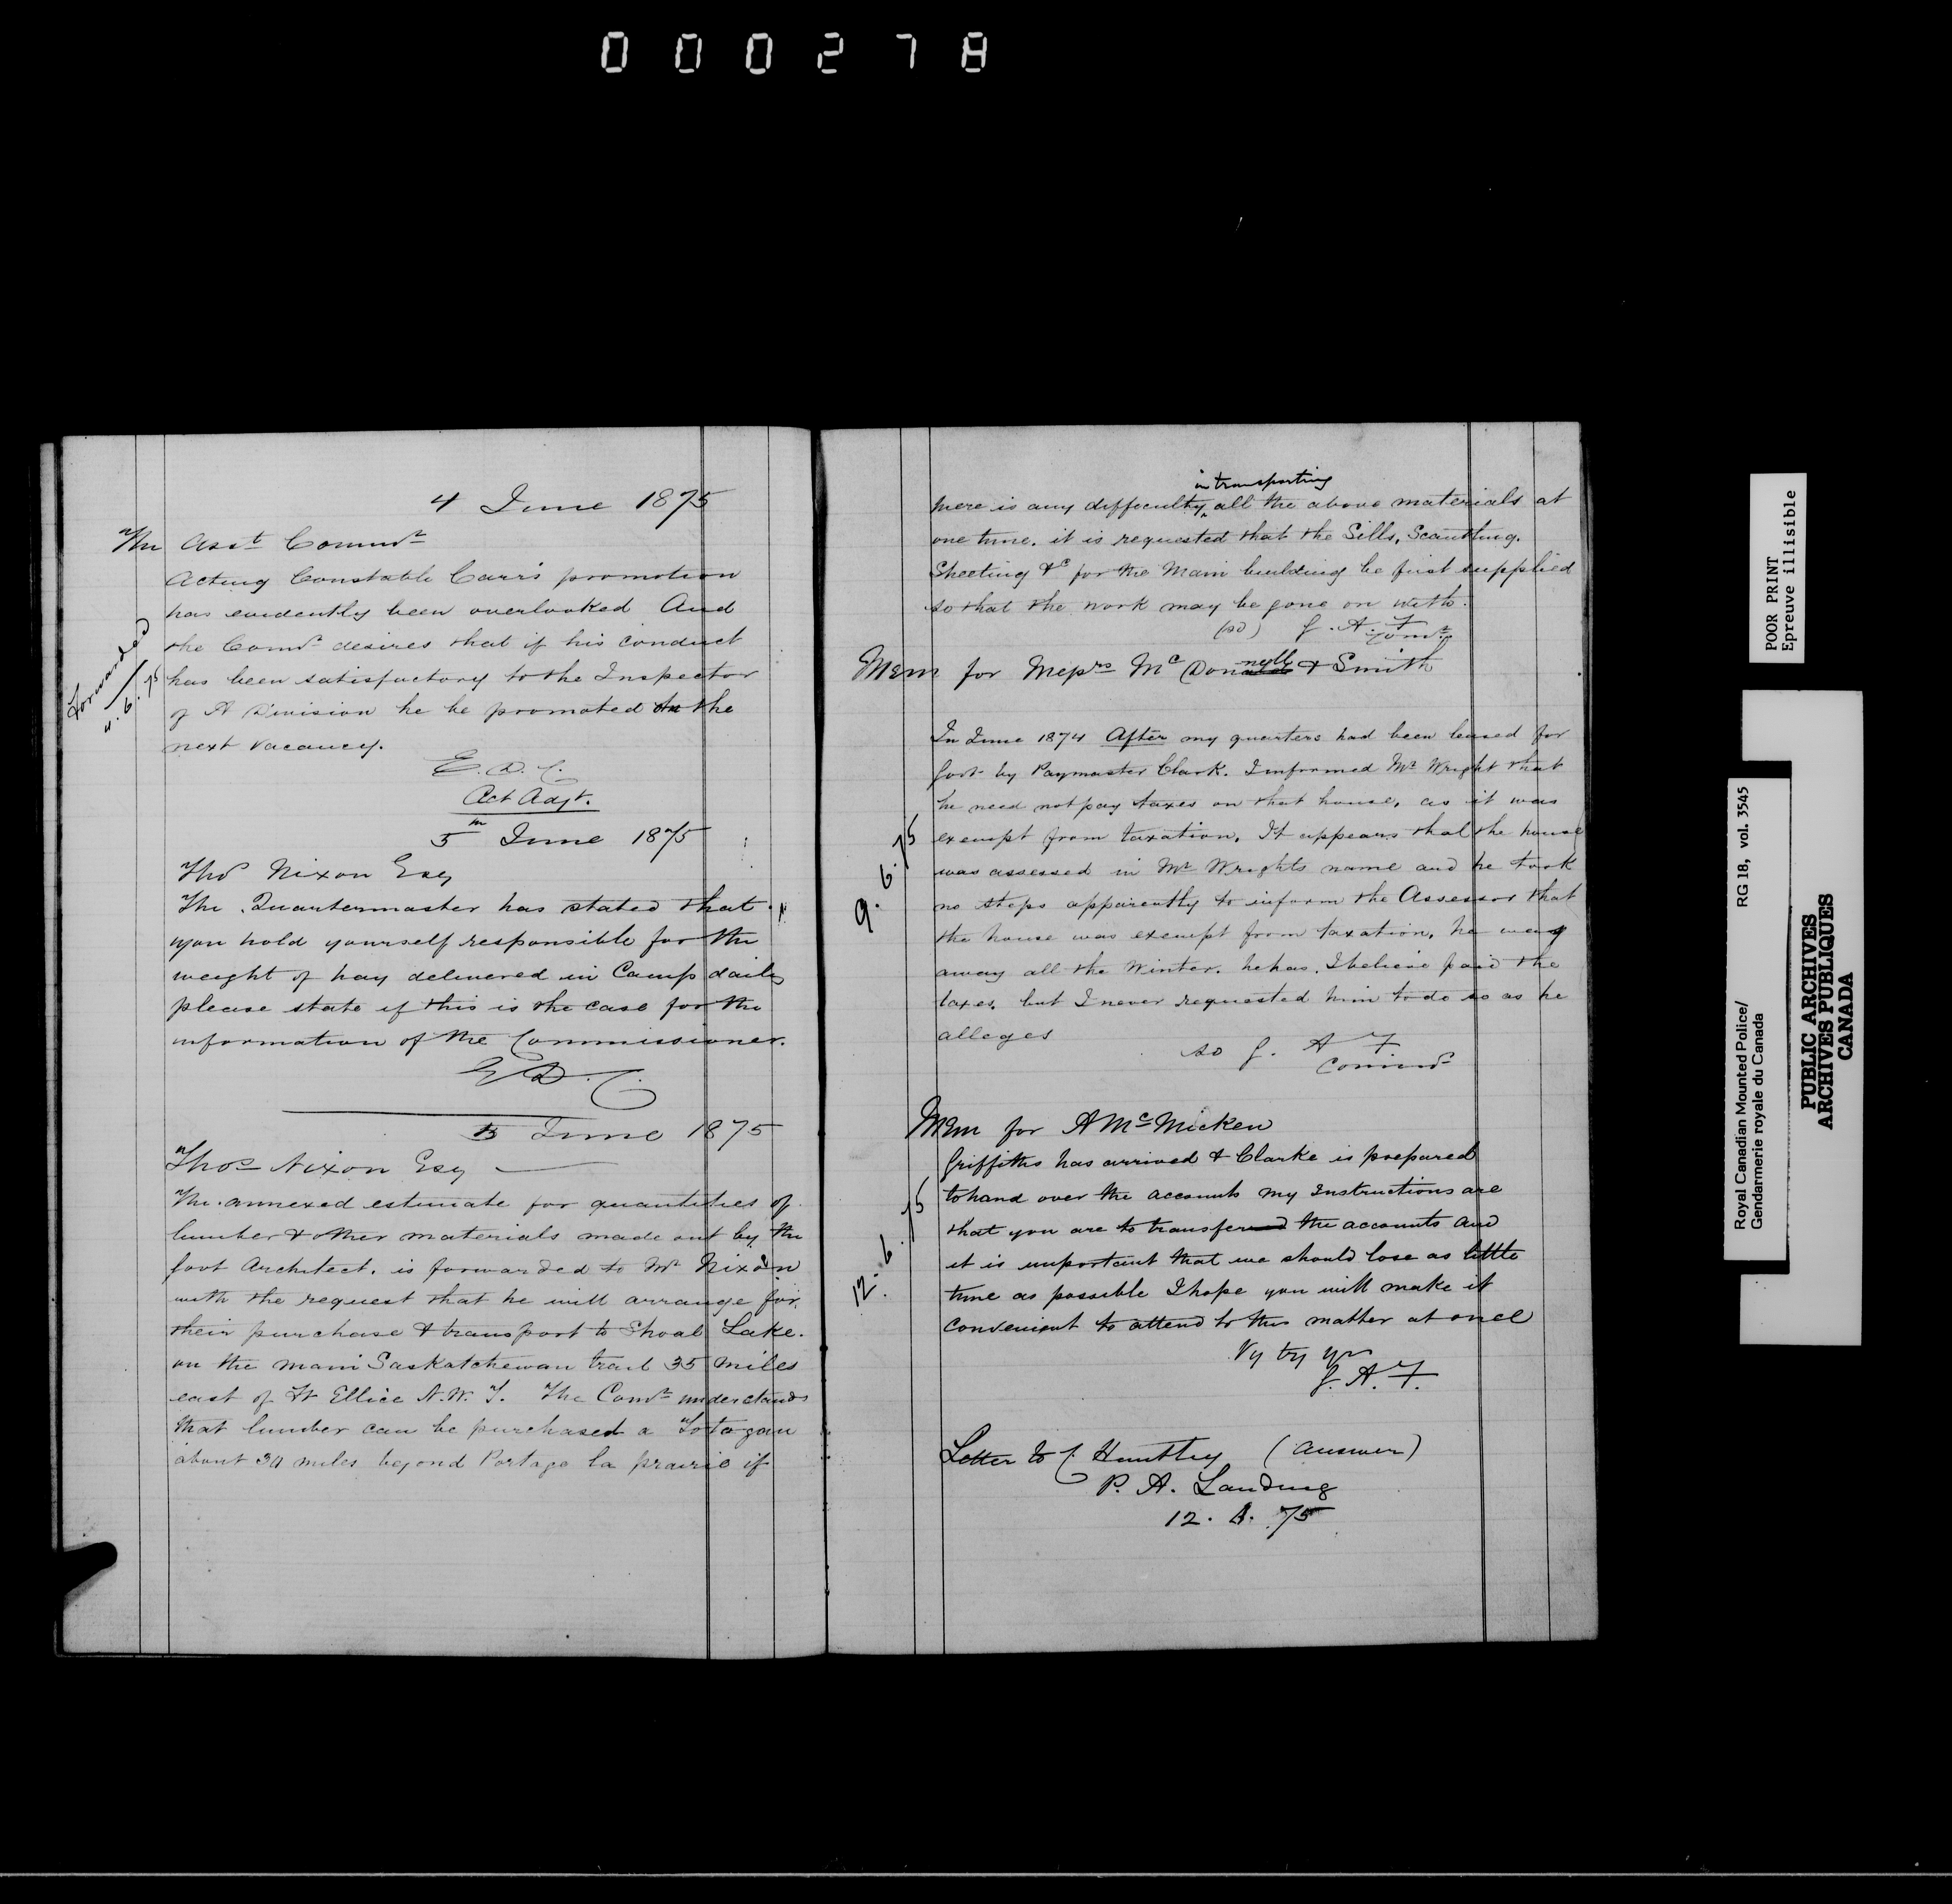 000278
4 June 1875
The Asst Commr
Acting Constable Carr's promotion
has evidently been overlooked And
the Comr desires that if his conduct
has been satisfactory to the Inspector
of A Division he be promoted the
next vacancy.
Forwarded
4.6.75
E. D. C.
Act Adjt.
5th June 1875
Thos Nixon Esq
The Quartermaster has stated that
you hold yourself responsible for the
weight of hay delivered in Camp daily
please state if this is the case for the
information of the Commissioner.
E D. C.
5 June 1875
Thos Nixon Esq
The annexed estimate for quantities of
lumber & other materials made out by the
Govt Architect. is forwarded to Mr Nixon
with the request that he will arrange for
their purchase & transport to Shoal Lake.
on the main Saskatchewan trail 35 miles
east of Ft Ellice N.W.T. The Comr understands
that lumber can be purchased a Totogan
about 30 miles beyond Portage la prairie if
there is any difficulty in transporting all the above materials at
one time. it is requested that the Sills, Scantling.
Sheeting &c for the Main building be first supplied
so that the work may be gone on with.
(sd) G. A. F
Comr
Mem for Messrs McDonnell & Smith
In June 1874 After my quarters had been leased for
Govt by Paymaster Clark. I informed Mr Wright that
he need not pay taxes on that house, as it was
exempt from taxation. It appears that the house
was assessed in Mr Wrights name and he took
no steps apparently to inform the Assessor that
the house was exempt from taxation, he was
away all the Winter. he has. I believe paid the
taxes, but I never requested him to do so as he
alleges
9.6.75
sd G. A F
Commr
Mem for A McMicken
Griffiths has arrived & Clarke is prepared
to hand over the accounts my Instructions are
that you are to transfer the accounts and
it is important that we should lose as little
time as possible I hope you will make it
convenient to attend to this matter at once
12.6.75
Vy try yrs
G. A. F.
Letter to C Huntley (answer)
P. A. Landing
12. 6. 75
POOR PRINT
Epreuve illisible
Royal Canadian Mounted Police/ RG 18, vol. 3545
Gendarmerie royale du Canada
PUBLIC ARCHIVES
ARCHIVES PUBLIQUES
CANADA